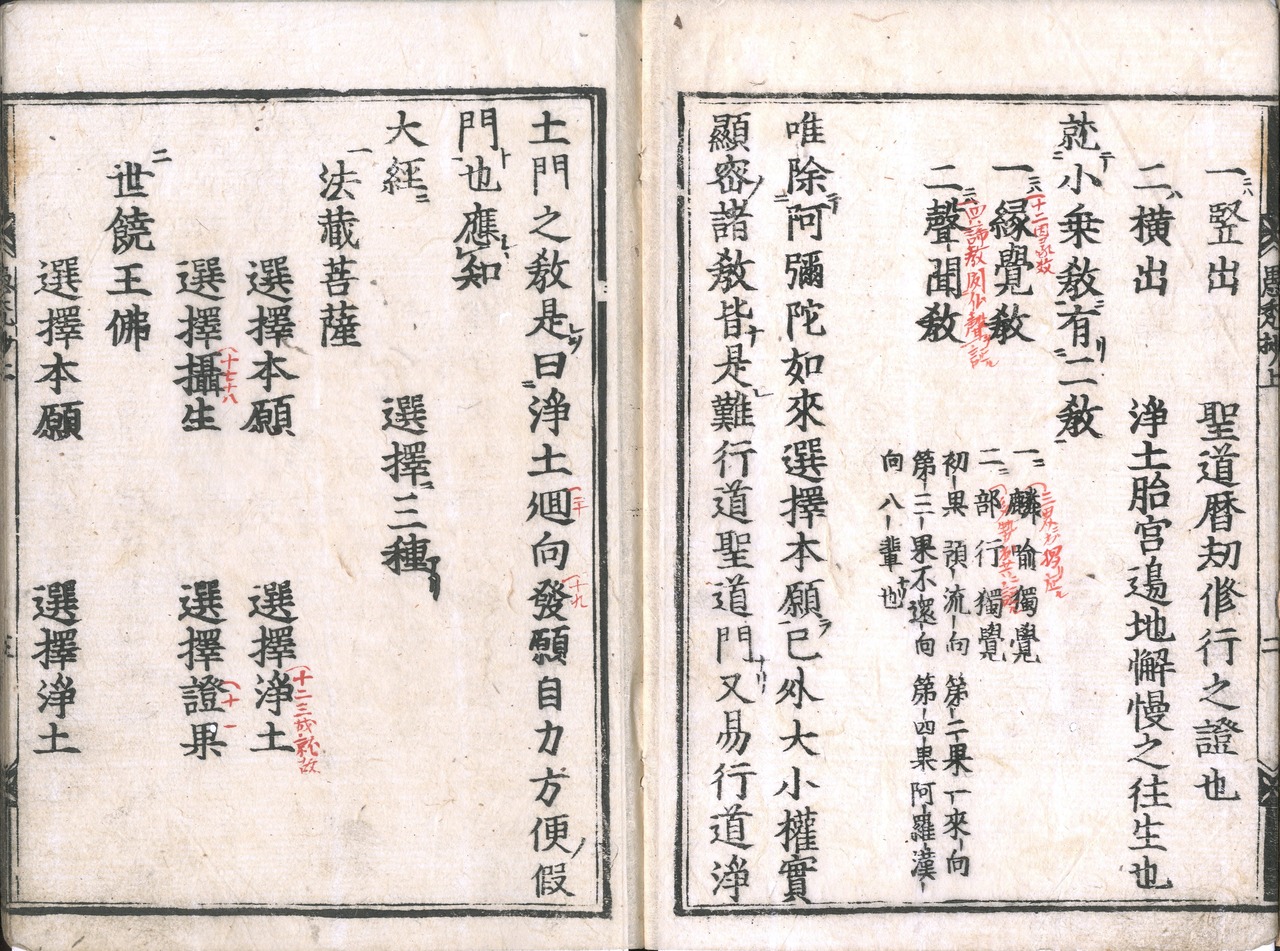 一竪出 聖道暦劫修行之證也
二横出 淨土胎宮邊地懈慢之往生也
就小乗教有二教
一縁覺教 一麟喩獨覺
二部行獨覺
二聲聞教 初果預流向 第二果一來向
第三果不還向 第四果阿羅漢
向八輩也
唯除阿彌陀如來選擇本願已外大小權實
顯密諸教皆是難行道聖道門又易行道淨
土門之教是曰淨土廻向發願自力方便假
門也應知
大經 選擇三種
一法藏菩薩
選擇本願 選擇淨土
選擇攝生 選擇證果
二世饒王佛
選擇本願 選擇淨土